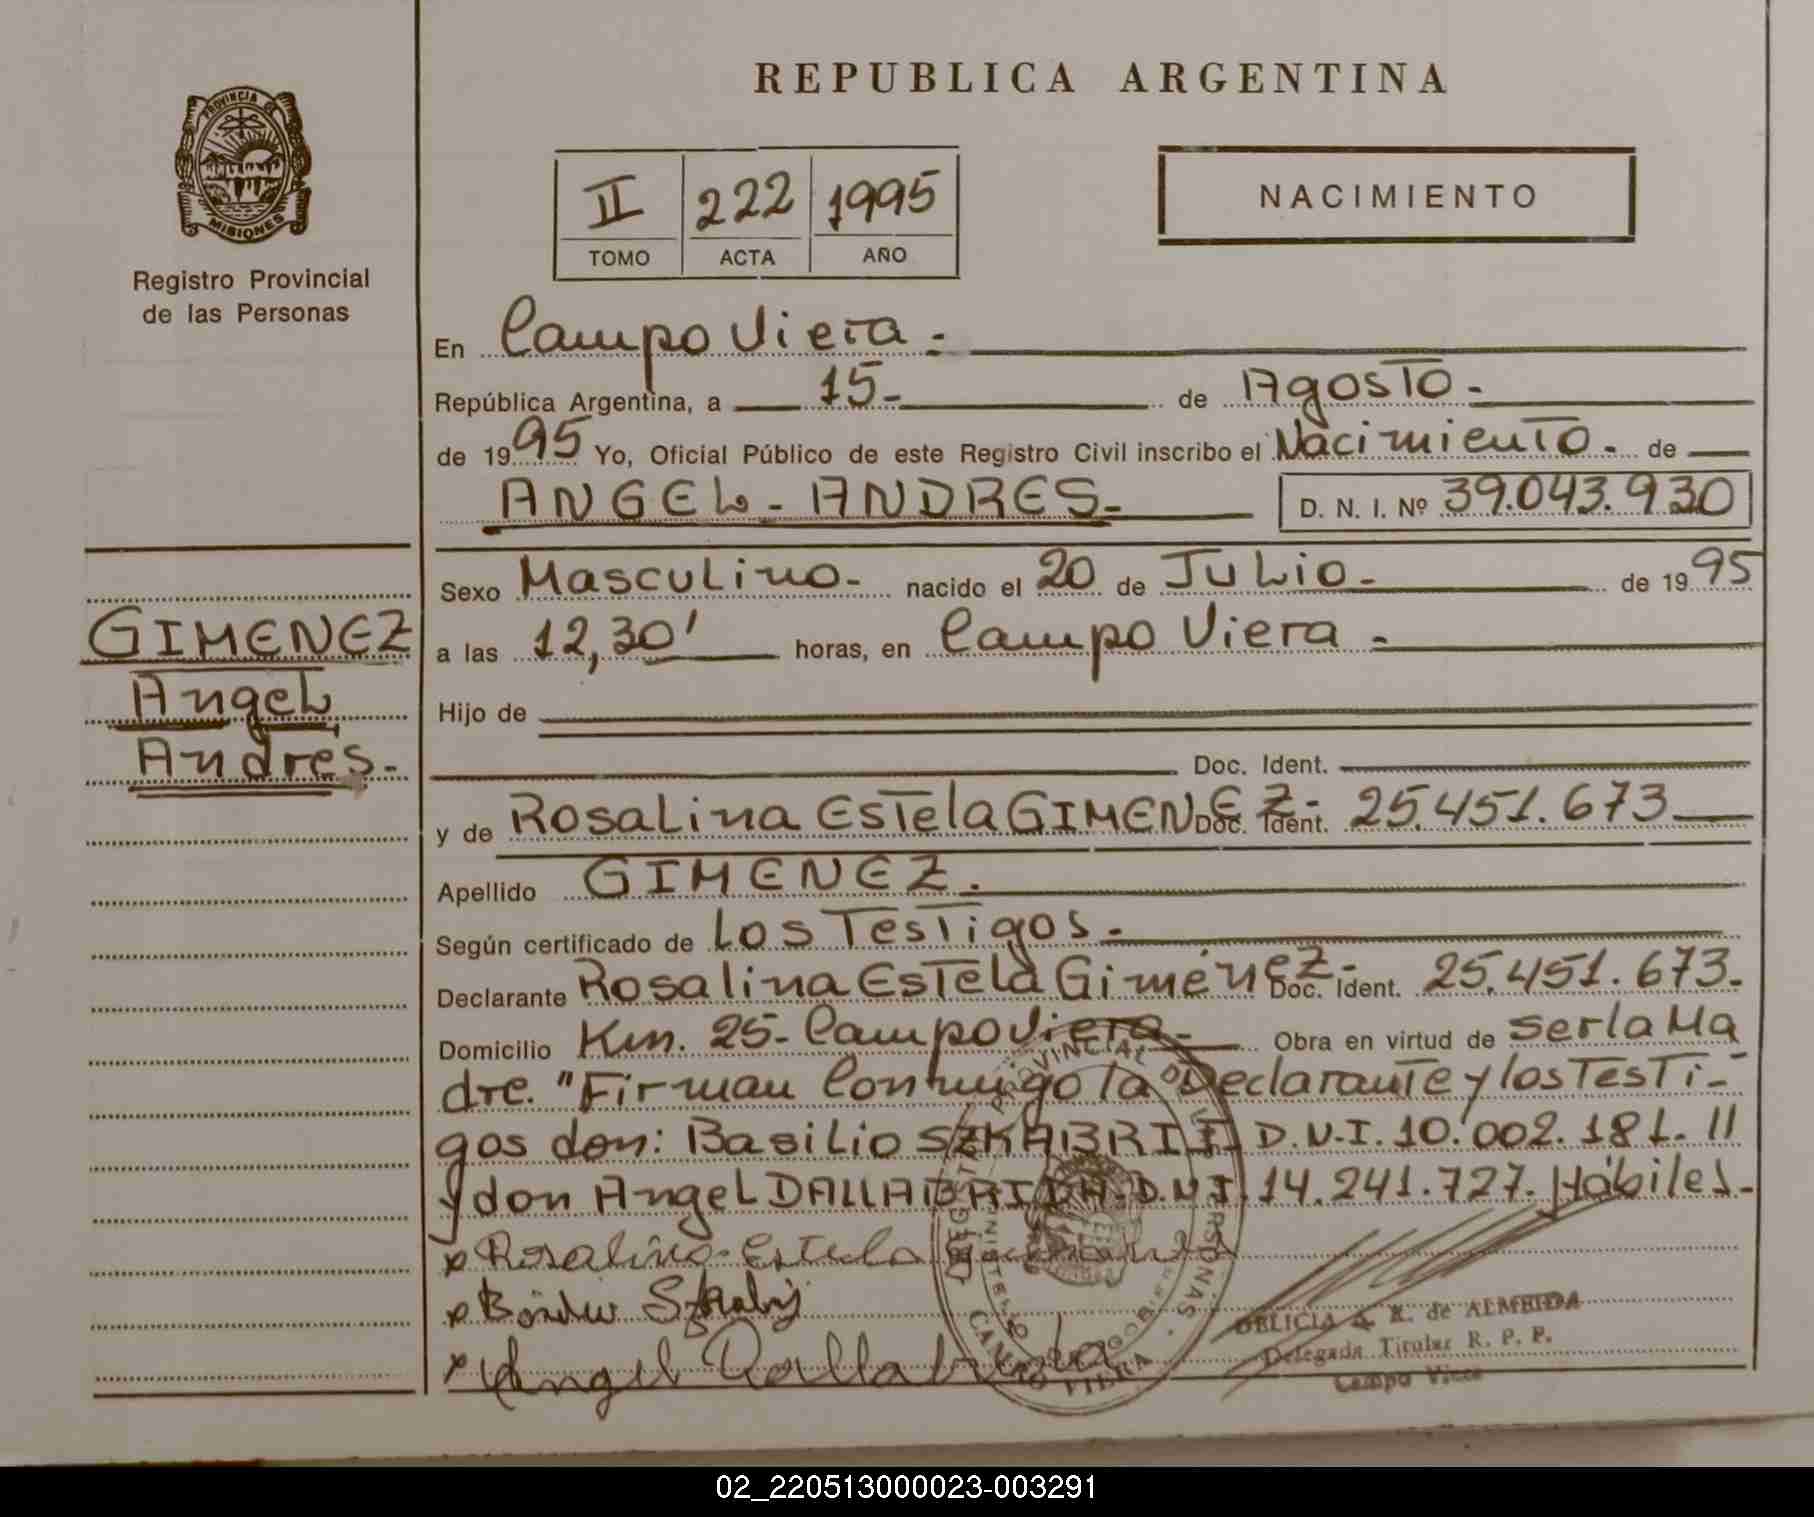 REPUBLICA ARGENTINA
PROVINCIA DE
MISIONES
Registro Provincial
de las Personas
II 222 1995
TOMO ACTA AÑO
NACIMIENTO
En Campo Viera.-
República Argentina, a 15- de Agosto.-
de 1995 Yo, Oficial Público de este Registro Civil inscribo el Nacimiento. de
ANGEL - ANDRES.- D. N. I. Nº 39.043.930
Sexo Masculino.- nacido el 20 de Julio.- de 1995
GIMENEZ
Angel
Andres.-
a las 12,30' horas, en Campo Viera.-
Hijo de
Doc. Ident.
y de Rosalina Estela GIMENEZ.- Doc. Ident. 25.451.673
Apellido GIMENEZ.
Según certificado de Los Testigos.-
Declarante Rosalina Estela Giménez.- Doc. Ident. 25.451.673.-
Domicilio Km. 25- Campo Viera.- Obra en virtud de ser la Ma
dre. "Firman Conmigo la Declarante y los Testi-
gos don: Basilio SZKABRII D.N.I. 10.002.181. II
y don Angel DALLABRIDA- D.N.I. 14.241.727. Hábiles.-
x Rosalina Estela
x
x Angel Dallabrida
PROVINCIAL DE LAS PERSONAS
CAMPO VIERA
DELICIA A. K. de ALMEIDA
Delegada Titular R. P. P.
Campo Viera
02_220513000023-003291